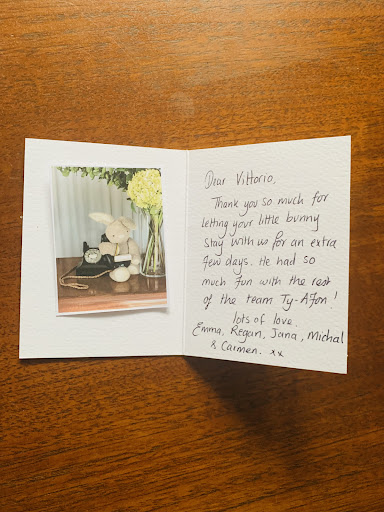 Dear Vittorio,
Thank you so much for
letting your little bunny
stay with us for an extra
few days. He had so
much fun with the rest
of the team Ty-Afon!
lots of love.
Emma, Regan, Jana, Michal
& Carmen. xx